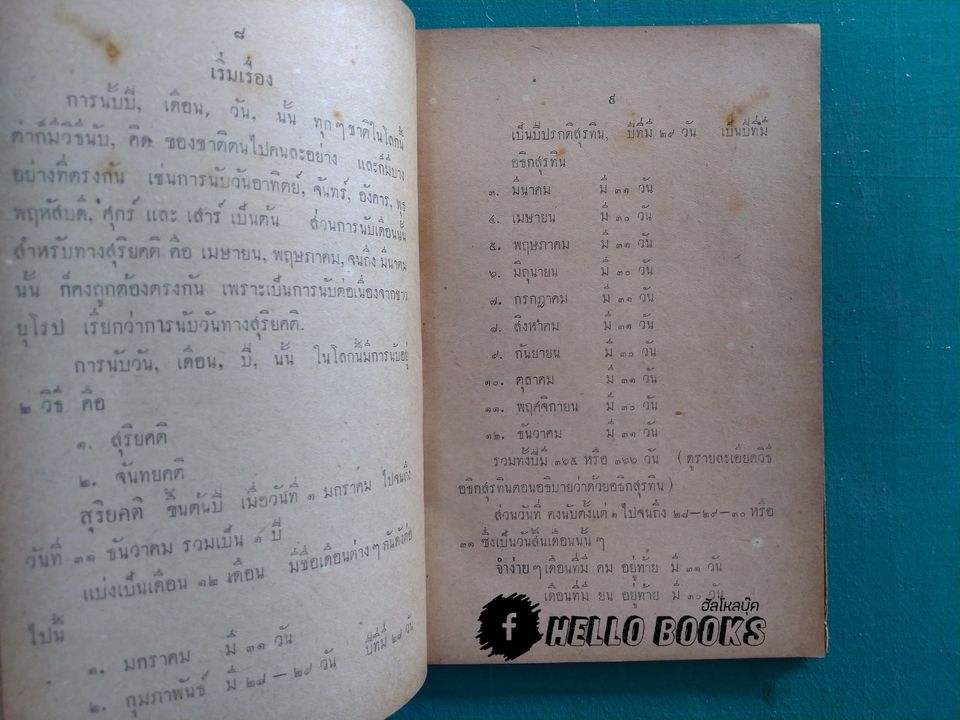 ๘
เริ่มเรื่อง
การนับปี, เดือน, วัน, นั้น ทุกๆ ชาติในโลกนี้
ต่างก็มีวิธีนับ, คิด ของชาติตนไปคนละอย่าง และก็มีบาง
อย่างที่ตรงกัน เช่นการนับวันอาทิตย์, จันทร์, อังคาร, พุธ
พฤหัสบดี, ศุกร์ และ เสาร์ เป็นต้น ส่วนการนับเดือนนั้น
สำหรับทางสุริยคติ คือ เมษายน, พฤษภาคม, จนถึง มีนาคม
นั้น ก็คงถูกต้องตรงกัน เพราะเป็นการนับต่อเนื่องจากชาว
ยุโรป เรียกว่าการนับวันทางสุริยคติ.
การนับวัน, เดือน, ปี, นั้น ในโลกนี้มีการนับอยู่
๒ วิธี คือ
๑. สุริยคติ
๒. จันทยคติ
สุริยคติ ขึ้นต้นปี เมื่อวันที่ ๑ มกราคม ไปจนถึง
วันที่ ๓๑ ธันวาคม รวมเป็น ๑ ปี
แบ่งเป็นเดือน ๑๒ เดือน มีชื่อเดือนต่างๆ กันดังต่อ
ไปนี้
๑. มกราคม มี ๓๑ วัน
๒. กุมภาพันธ์ มี ๒๘ – ๒๙ วัน ปีที่มี ๒๘ วัน
๙
เป็นปีปรกติสุรทิน, ปีที่มี ๒๙ วัน เป็นปีที่มี
อธิกสุรทิน
๓. มีนาคม มี ๓๑ วัน
๔. เมษายน มี ๓๐ วัน
๕. พฤษภาคม มี ๓๑ วัน
๖. มิถุนายน มี ๓๐ วัน
๗. กรกฎาคม มี ๓๑ วัน
๘. สิงหาคม มี ๓๑ วัน
๙. กันยายน มี ๓๐ วัน
๑๐. ตุลาคม มี ๓๑ วัน
๑๑. พฤศจิกายน มี ๓๐ วัน
๑๒. ธันวาคม มี ๓๑ วัน
รวมทั้งปีมี ๓๖๕ หรือ ๓๖๖ วัน (ดูรายละเอียดวิธี
อธิกสุรทินตอนอธิบายว่าด้วยอธิกสุรทิน)
ส่วนวันที่ คงนับตั้งแต่ ๑ ไปจนถึง ๒๘–๒๙–๓๐ หรือ
๓๑ ซึ่งเป็นวันสิ้นเดือนนั้น ๆ
จำง่ายๆ เดือนที่มี คม อยู่ท้าย มี ๓๑ วัน
เดือนที่มี ยน อยู่ท้าย มี ๓๐ วัน
ฮัลโหลบุ๊ค
f HELLO BOOKS